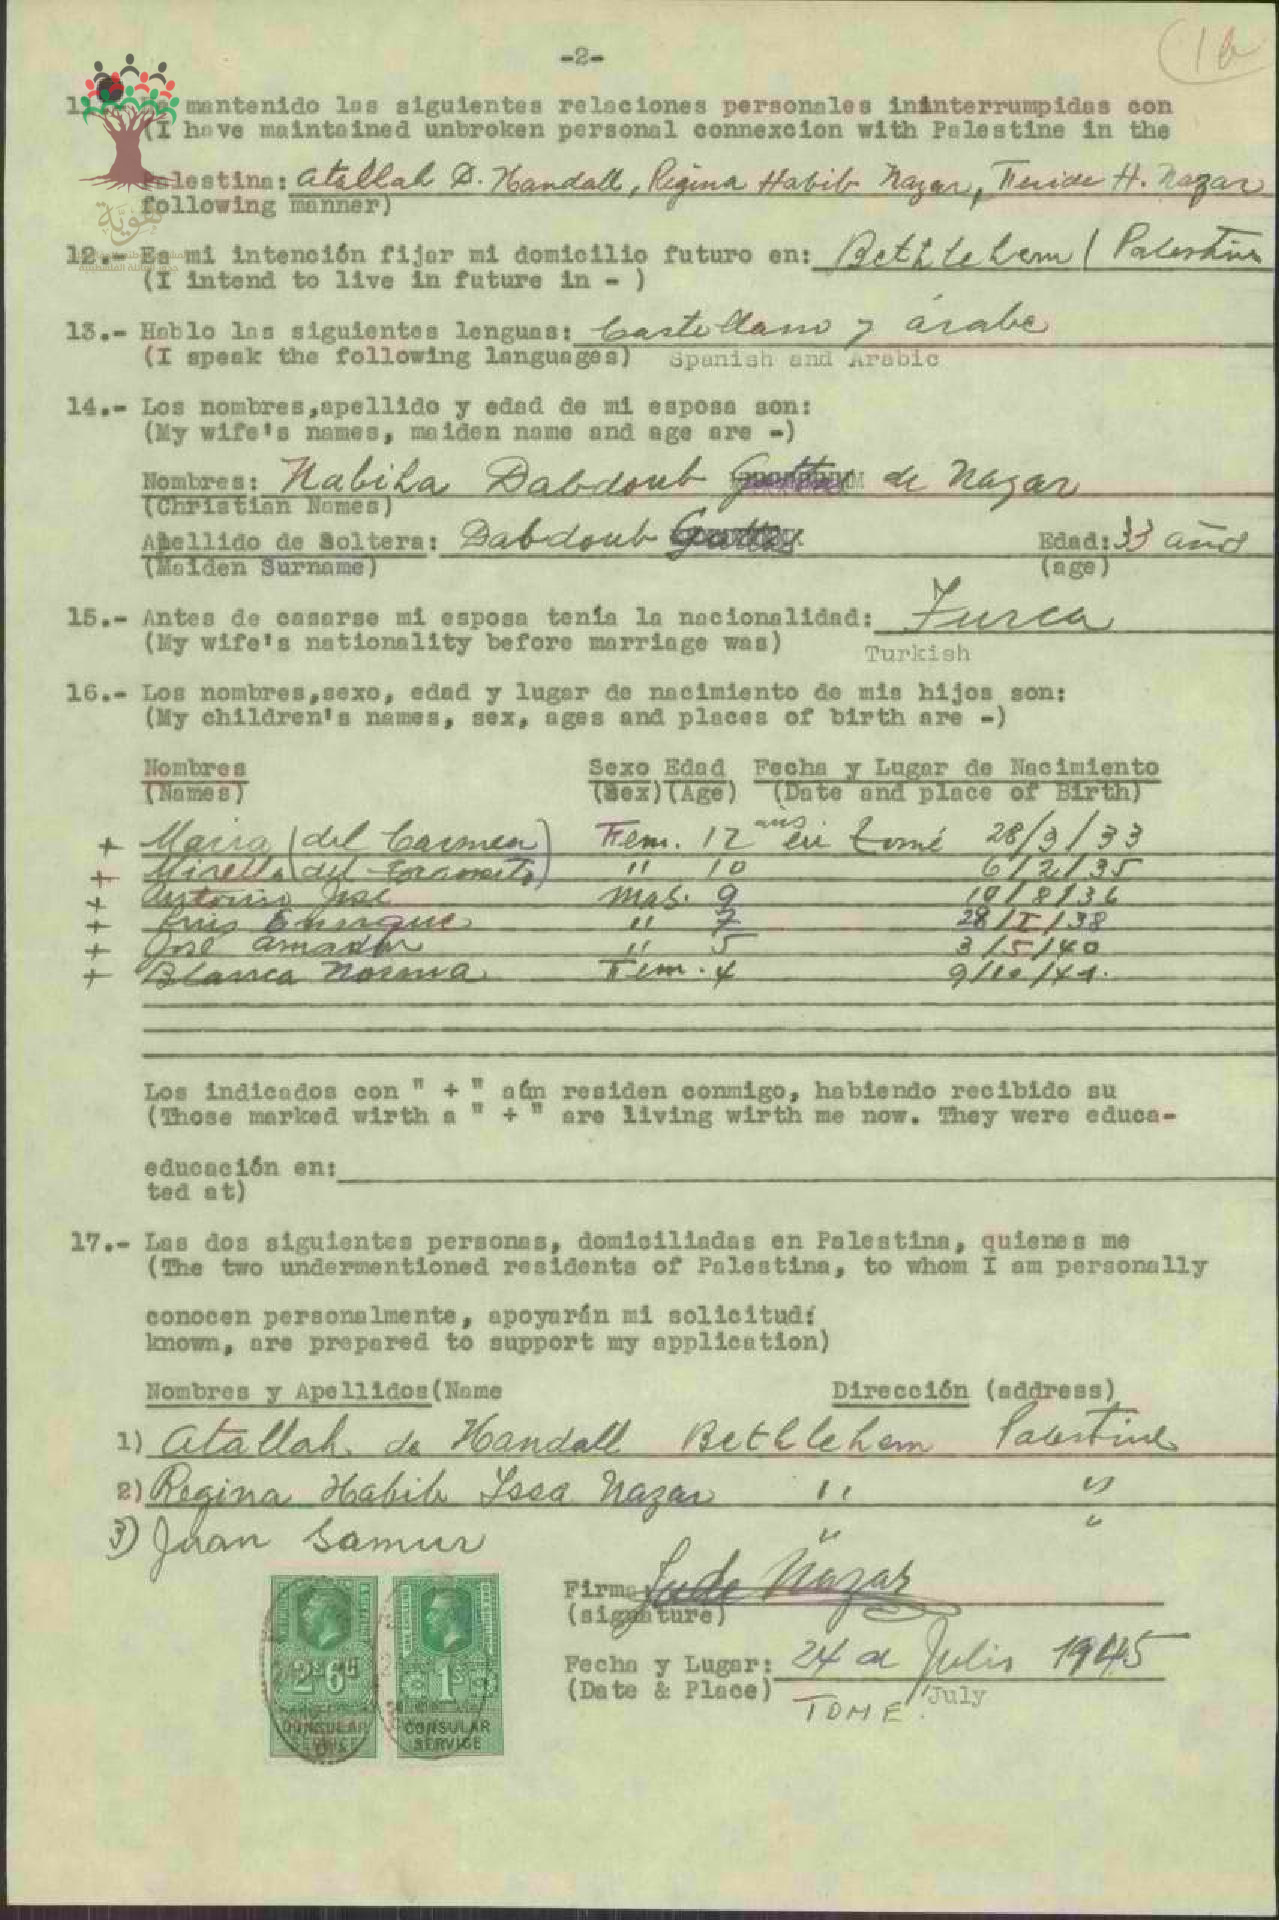 -2-
1b
mantenido las siguientes relaciones personales ininterrumpidas con
(I have maintained unbroken personal connexcion with Palestine in the
Palestina: Atallah D. Handall, Regina Habib Nazar, Feride H. Nazar
following manner)
12.- Es mi intención fijar mi domicilio futuro en: Bethlehem / Palestine
(I intend to live in future in - )
13.- Hablo las siguientes lenguas: Castellano y árabe
(I speak the following languages) Spanish and Arabic
14.- Los nombres,apellido y edad de mi esposa son:
(My wife's names, maiden name and age are -)
Nombres: Nabiha Dabdoub de Nazar
(Christian Names)
Apellido de Soltera: Dabdoub Edad: 33 años
(Maiden Surname) (age)
15.- Antes de casarse mi esposa tenía la nacionalidad: Turca
(My wife's nationality before marriage was) Turkish
16.- Los nombres,sexo, edad y lugar de nacimiento de mis hijos son:
(My children's names, sex, ages and places of birth are -)
Nombres Sexo Edad Fecha y Lugar de Nacimiento
(Names) (Sex)(Age) (Date and place of Birth)
+ Maria (del Carmen) Fem. 12 años en Tomé 28/3/33
+ Mirella (del) " 10 6/2/35
+ Antonio José Mas. 9 10/8/36
+ Luis Enrique " 7 28/I/38
+ José Amador " 5 3/5/40
+ Blanca Norma Fem. 4 9/10/41.
Los indicados con " + " aún residen conmigo, habiendo recibido su
(Those marked wirth a " + " are living wirth me now. They were educa-
educación en:
ted at)
17.- Las dos siguientes personas, domiciliadas en Palestina, quienes me
(The two undermentioned residents of Palestina, to whom I am personally
conocen personalmente, apoyarán mi solicitud:
known, are prepared to support my application)
Nombres y Apellidos(Name Dirección (address)
1) Atallah de Handall Bethlehem Palestine
2) Regina Habib Issa Nazar " "
3) Juan Samur " "
Firma: Nazar
(signature)
Fecha y Lugar: 24 de Julio 1945
(Date & Place) TOME. July
2s 6d 1s
CONSULAR SERVICE CONSULAR SERVICE